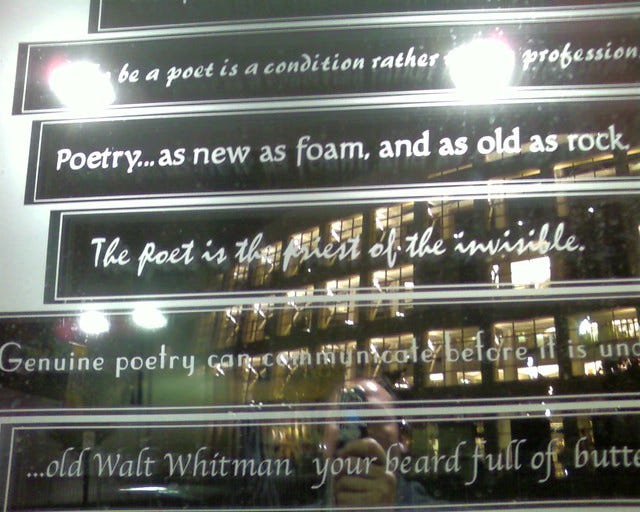 be a poet is a condition rather profession
Poetry...as new as foam, and as old as rock.
The Poet is the priest of the invisible.
Genuine poetry can communicate before it is
...old Walt Whitman your beard full of